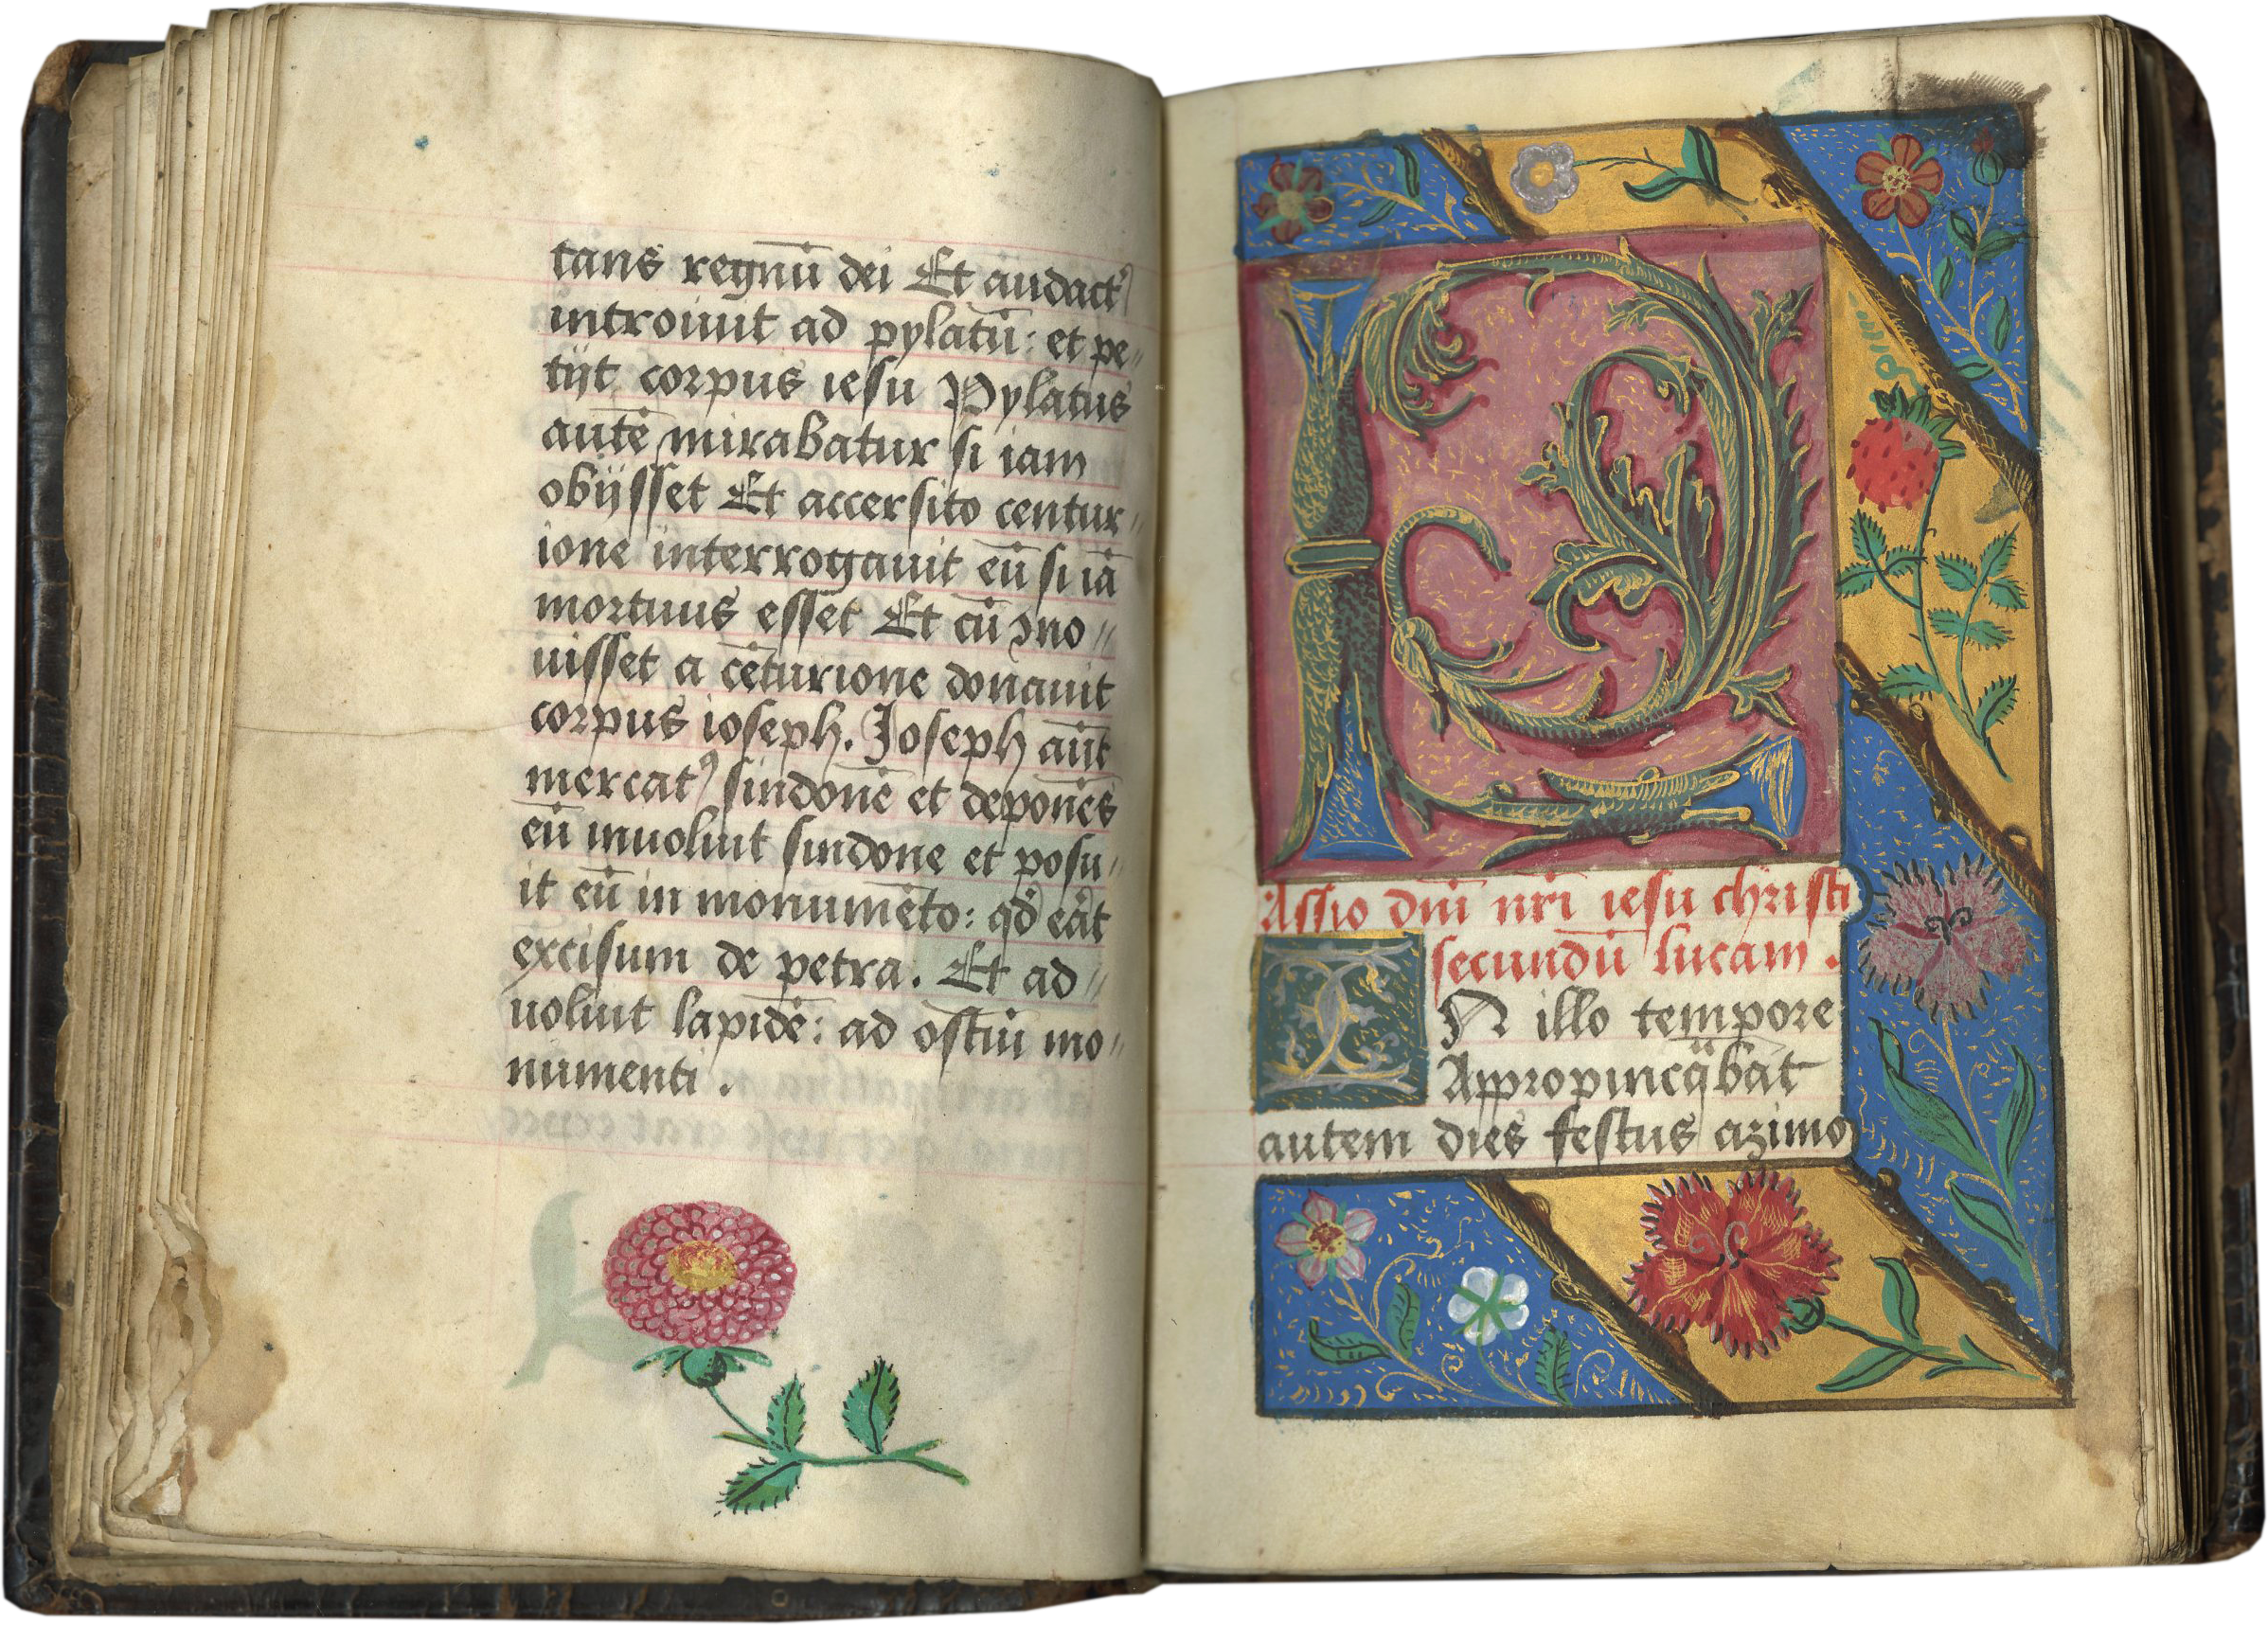 tans regnū dei Et audact᷎
introiuit ad pylatū: et pe〃
tijt corpus iesu Pylatus
autē mirabatur si iam
obijsset Et accersito centur〃
ione interrogauit eū si iā
mortuus esset Et cū ꝯno〃
uisset a cēturione donauit
corpus ioseph. Joseph aūt
mercatꝰ sindonē et deponēs
eū inuoluit sindone et posu〃
it eū in monumēto: qd̓ eāt
excisum de petra. Et ad〃
uoluit lapidē: ad ostiū mo〃
numenti.
P
Assio dn̄i nr̄i iesu christi
secundū lucam.
IN illo tempore
Appropinqᷓbat
autem dies festus azimo